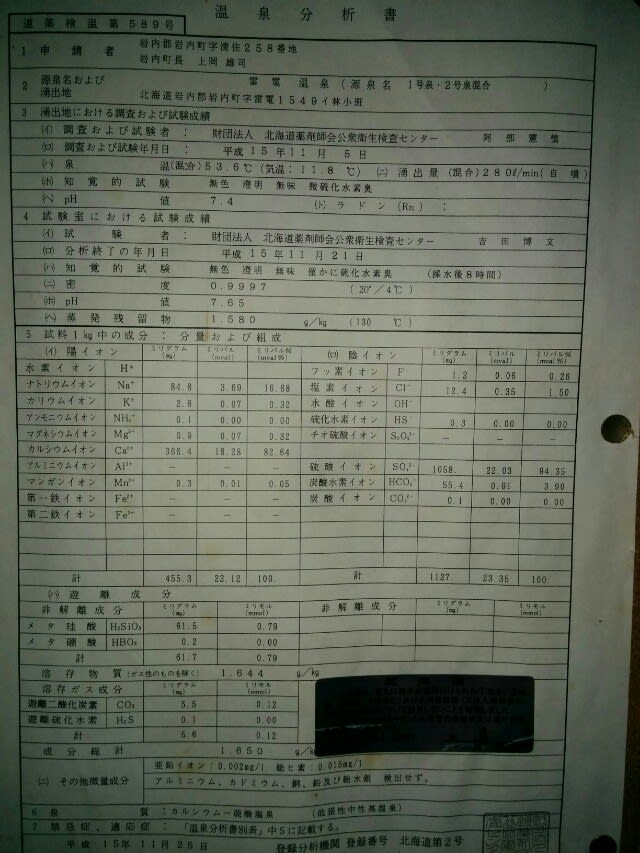 温泉分析書
道薬検温第589号
1 申請者 岩内郡岩内町字清住258番地
岩内町長 上岡 雄司
2 源泉名および湧出地 雷電温泉(源泉名 1号泉・2号泉混合)
北海道岩内郡岩内町字雷電1549イ林小班
3 湧出地における調査および試験成績
(イ) 調査および試験者: 財団法人 北海道薬剤師会公衆衛生検査センター 阿部憲慎
(ロ) 調査および試験年月日: 平成15年11月5日
(ハ) 泉温(混合)53.6℃(気温:11.8℃) (ニ) 湧出量(混合)280ℓ/min(自噴)
(ホ) 知覚的試験 無色 澄明 無味 微硫化水素臭
(ヘ) pH値 7.4 (ト) ラドン(Rn):
4 試験室における試験成績
(イ) 試験者: 財団法人 北海道薬剤師会公衆衛生検査センター 吉田博文
(ロ) 分析終了の年月日 平成15年11月21日
(ハ) 知覚的試験 無色 澄明 無味 僅かに硫化水素臭 (採水後8時間)
(ニ) 密度 0.9997 (20°/4℃)
(ホ) pH値 7.65
(ヘ) 蒸発残留物 1.580 g/kg (130 ℃)
5 試料1kg中の成分:分量および組成
(イ) 陽イオン ミリグラム(mg) ミリバル(mval) ミリバル% (mval%) (ロ) 陰イオン ミリグラム(mg) ミリバル(mval) ミリバル% (mval%)
水素イオン H⁺ フッ素イオン F⁻ 1.2 0.06 0.26
ナトリウムイオン Na⁺ 84.8 3.69 16.68 塩素イオン Cl⁻ 12.4 0.35 1.50
カリウムイオン K⁺ 2.8 0.07 0.32 水酸イオン OH⁻
アンモニウムイオン NH₄⁺ 0.1 0.00 0.00 硫化水素イオン HS 0.3 0.00 0.00
マグネシウムイオン Mg²⁺ 0.9 0.07 0.32 チオ硫酸イオン S₂O₃²⁻ — — —
カルシウムイオン Ca²⁺ 366.4 18.28 82.64
アルミニウムイオン Al³⁺ — — — 硫酸イオン SO₄²⁻ 1058. 22.03 94.35
マンガンイオン Mn²⁺ 0.3 0.01 0.05 炭酸水素イオン HCO₃⁻ 55.4 0.91 3.90
第一鉄イオン Fe²⁺ — — — 炭酸イオン CO₃²⁻ 0.1 0.00 0.00
第二鉄イオン Fe³⁺ — — —
計 455.3 22.12 100. 計 1127. 23.35 100.
(ハ) 遊離成分
非解離成分 ミリグラム(mg) ミリモル(mmol) 非解離成分 ミリグラム(mg) ミリモル(mmol)
メタ珪酸 H₂SiO₃ 61.5 0.79
メタ硼酸 HBO₂ 0.2 0.00
計 61.7 0.79
溶存物質(ガス性のものを除く) 1.644 g/kg
溶存ガス成分 ミリグラム(mg) ミリモル(mmol)
遊離二酸化炭素 CO₂ 5.5 0.12
遊離硫化水素 H₂S 0.1 0.00
計 5.6 0.12
成分総計 1.650 g/kg
(ニ) その他微量成分 亜鉛イオン:0.002mg/l 総ヒ素:0.015mg/l
アルミニウム、カドミウム、銅、鉛及び総水銀 検出せず。
6 泉質:カルシウム—硫酸塩泉 (低張性中性高温泉)
7 禁忌症、適応症:「温泉分析書別表」中5に記載する。
平成15年11月25日 登録分析機関 登録番号 北海道第2号